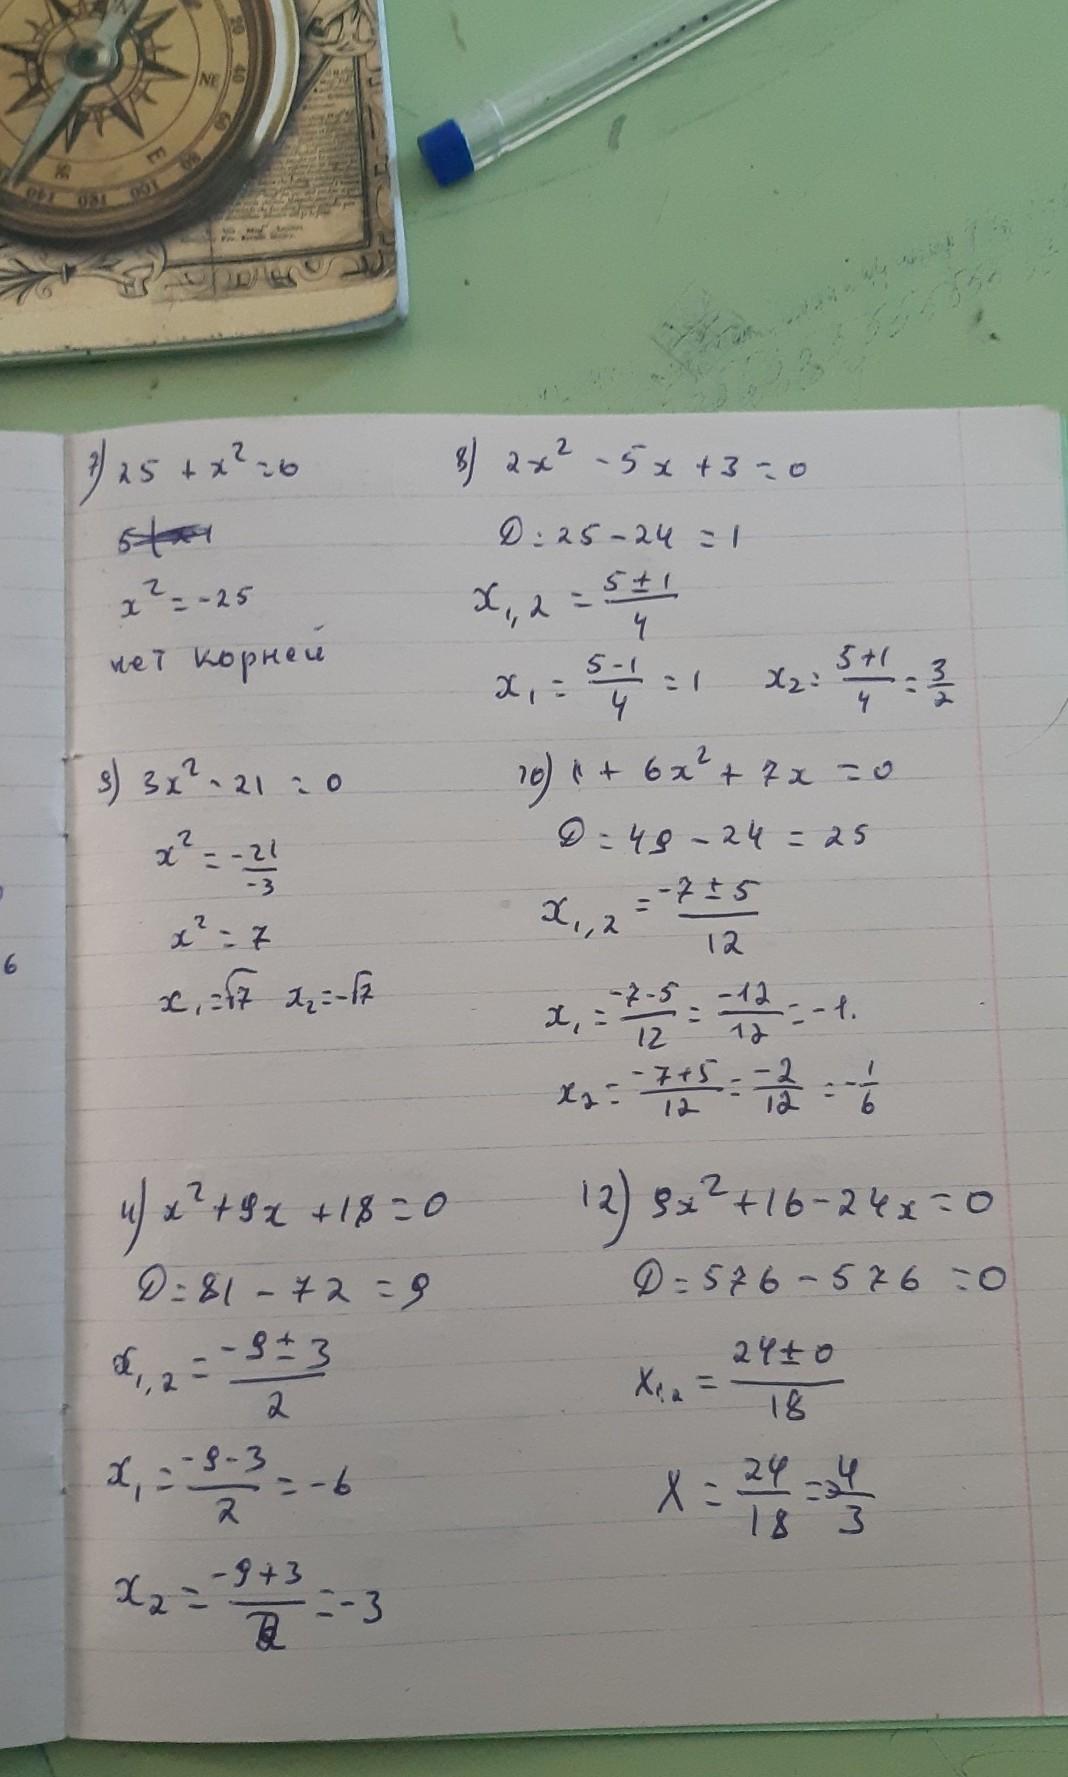 NE
E
SE
20
40
60
80
100
120
140
7) 25 + x² = 0
x² = -25
нет корней
8) 2x² - 5x + 3 = 0
D = 25 - 24 = 1
x₁,₂ = (5 ± 1)/4
x₁ = (5-1)/4 = 1 x₂ = (5+1)/4 = 3/2
9) 3x² - 21 = 0
x² = -21/-3
x² = 7
x₁ = √7 x₂ = -√7
10) 1 + 6x² + 7x = 0
D = 49 - 24 = 25
x₁,₂ = (-7 ± 5)/12
x₁ = (-7-5)/12 = -12/12 = -1.
x₂ = (-7+5)/12 = -2/12 = -1/6
11) x² + 9x + 18 = 0
D = 81 - 72 = 9
x₁,₂ = (-9 ± 3)/2
x₁ = (-9-3)/2 = -6
x₂ = (-9+3)/2 = -3
12) 9x² + 16 - 24x = 0
D = 576 - 576 = 0
x₁,₂ = (24 ± 0)/18
x = 24/18 = 4/3
6